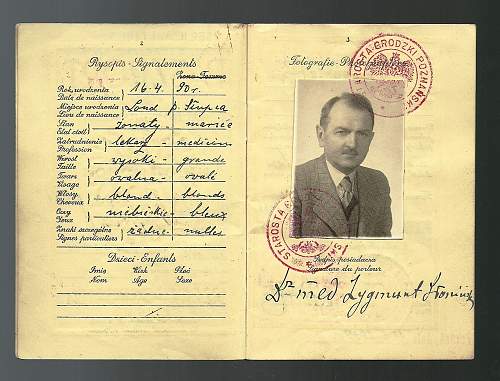 2
Rysopis - Signalements
Żona - Femme
Rok urodzenia 16.4. 90 r.
Date de naissance
Miejsce urodzenia Ląd p. Słupca
Lieu de naissance
Stan żonaty - marié
Etat civil
Zatrudnienie lekarz - médecin
Profession
Wzrost wysoki - grande
Taille
Twarz owalna - ovale
Visage
Włosy blond - blonds
Cheveux
Oczy niebieskie - bleux
Yeux
Znaki szczególne żadne - nulles
Signes particuliers
Dzieci - Enfants
Imię Wiek Płeć
Nom Age Sexe
3
Fotografie - Photographies
STAROSTA GRODZKI POZNAŃSKI
STAROSTA GRODZKI
Podpis posiadacza
Signature du porteur
Dr med Zygmunt